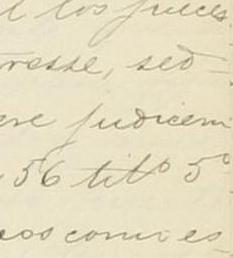 l los jueces
resse, sed
ere judicem
56 titº 5º
eos comu es-